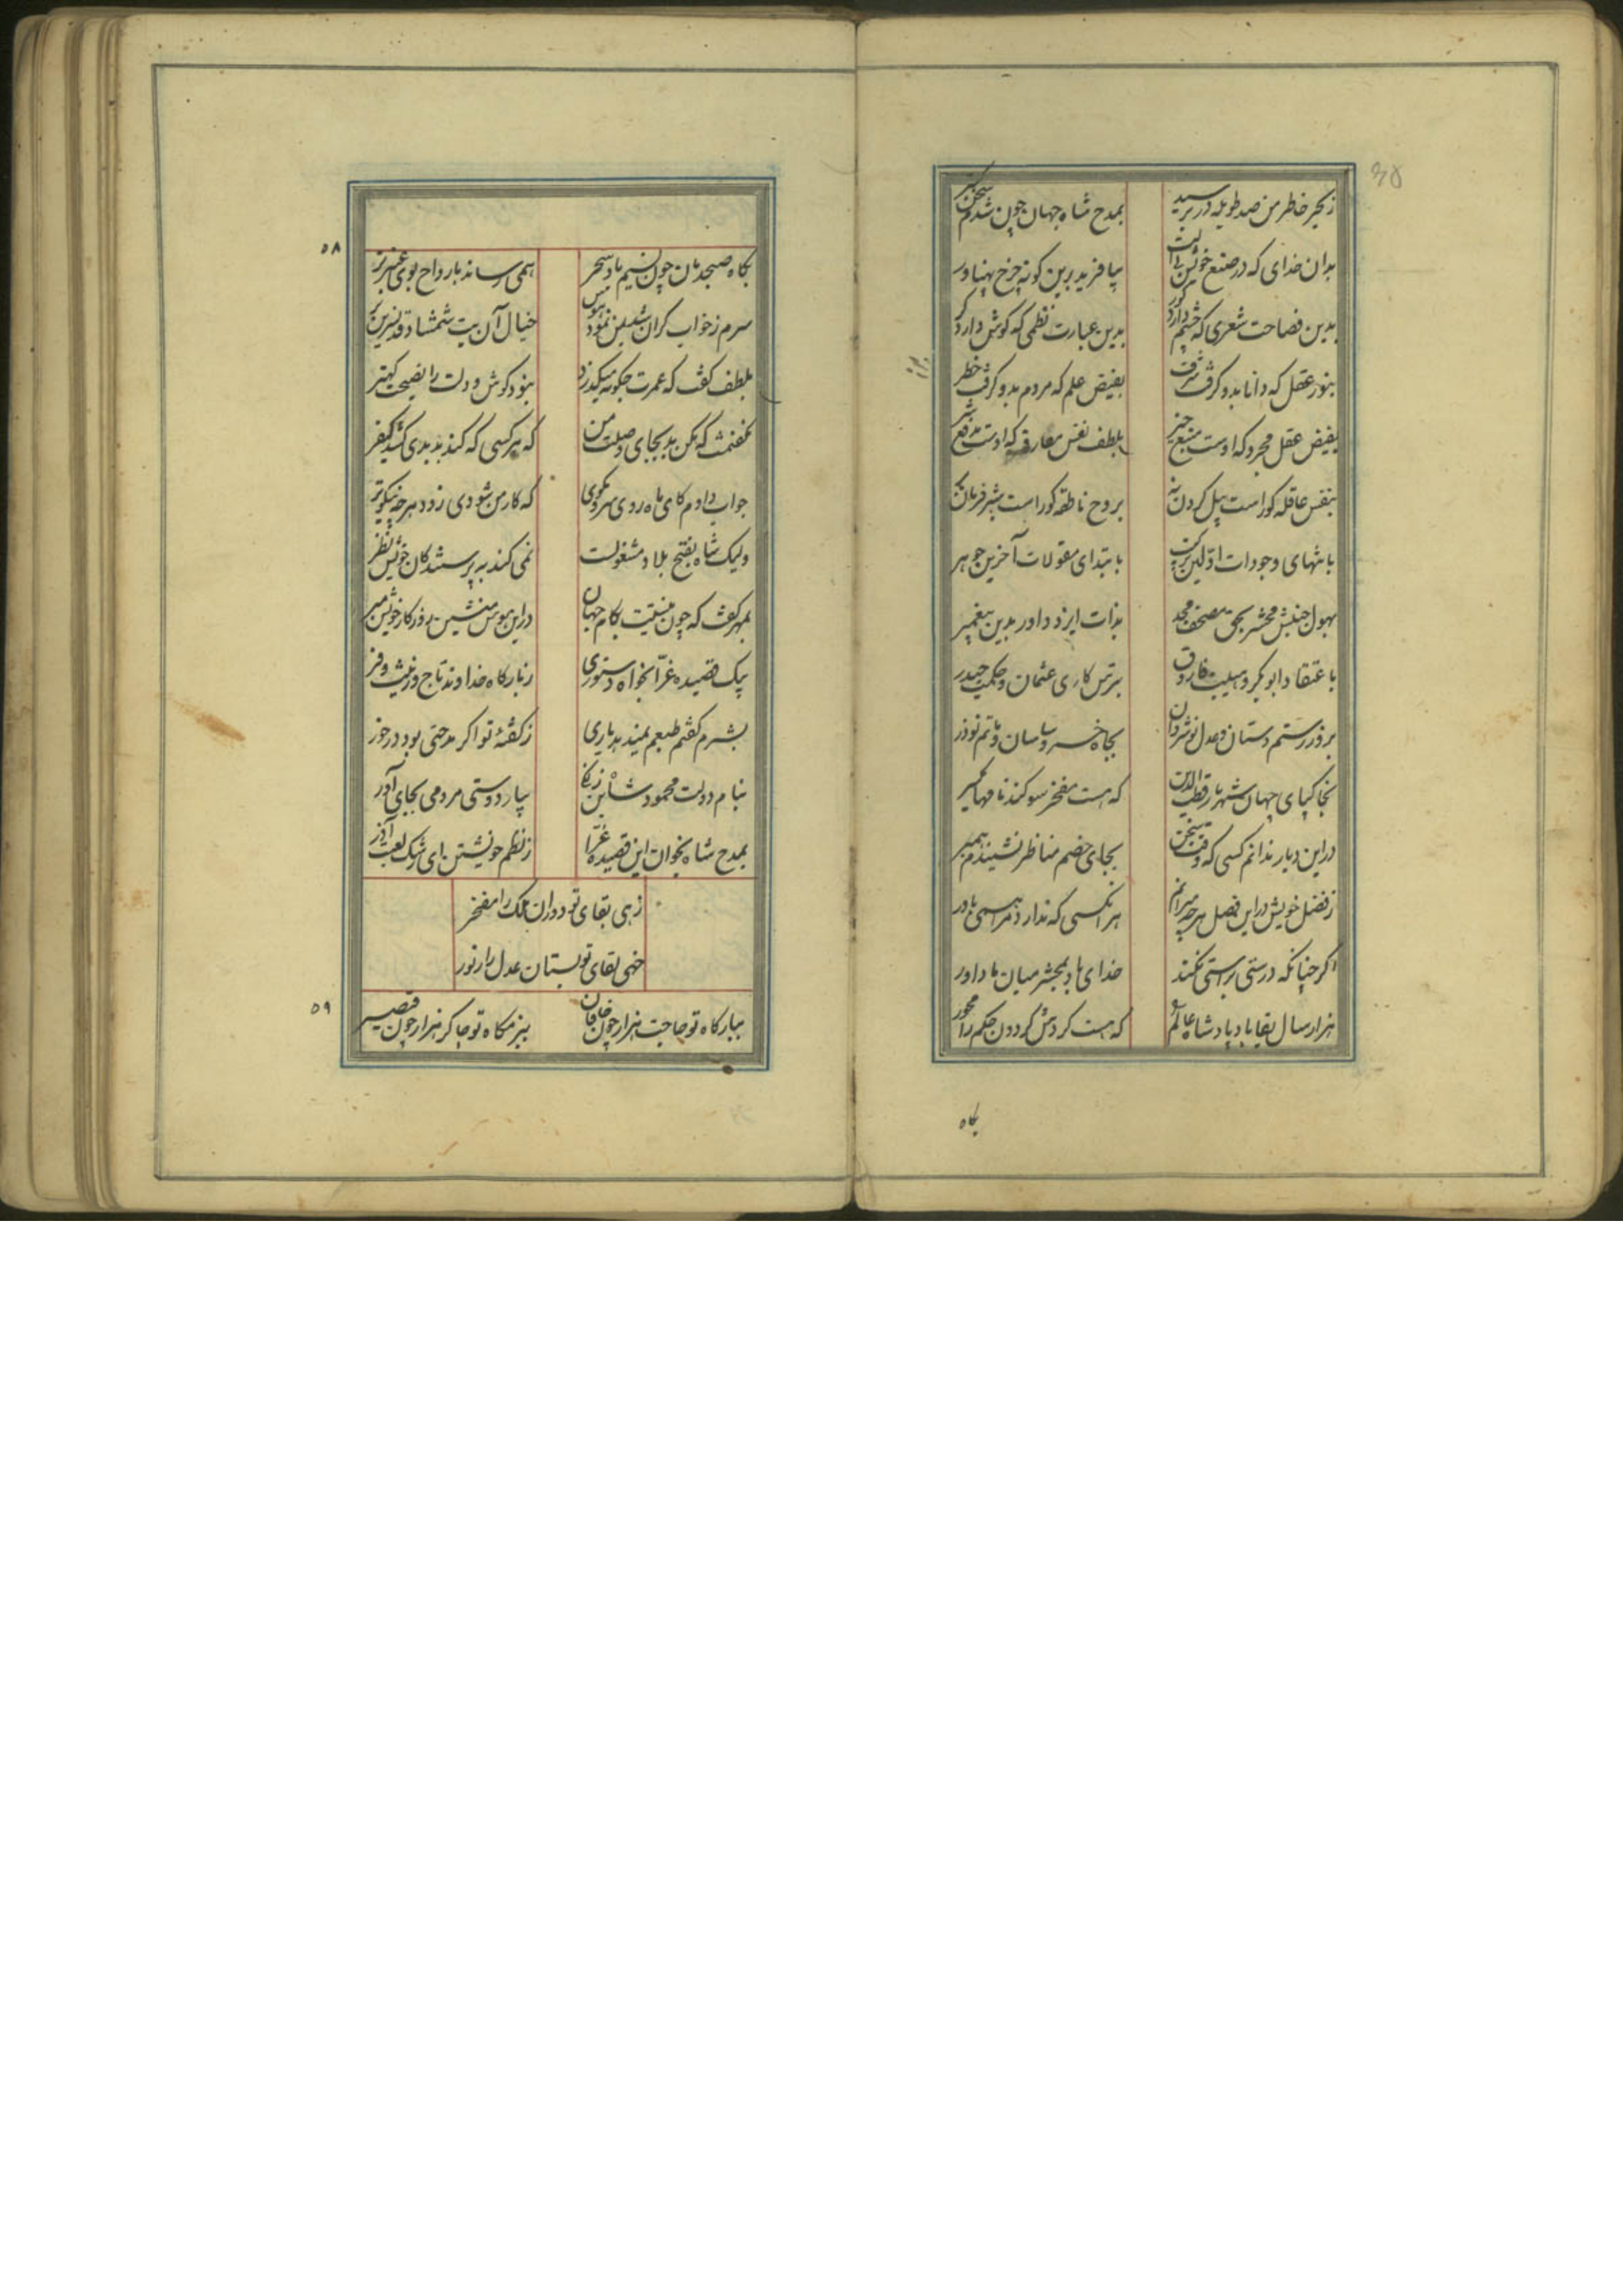 ز بحر خاطر من صد طویله در برسید
بمدح شاه جهان چون شدم سخن گستر
بدان خدای که در صنع خویش بی آلت
بیافرید برین گونه چرخ پهناور
بدین فصاحت شعری که چشم دارد کور
بدین عبارت نظمی که گوش دارد کر
بنور عقل که دانا بدو گرفت شرف
بفیض علم که مردم بدو گرفت خطر
بفیض عقل مجرد که اوست منبع خیر
بلطف نفس مفارق که اوست مدفع شر
بنفس عاقله کوراست پیل گردن نه
بروح ناطقه کوراست شیر فرمان بر
بانتهای وجودات اولین ترکیب
بابتدای مقولات آخرین جوهر
بهول جنبش محشر بحق مصحف مجد
بذات ایزد داور بدین پیغمبر
باعتقاد ابوبکر و هیبت فاروق
بترس کاری عثمان و حکمت حیدر
بزور رستم دستان و عدل نوشروان
بجاه خسرو ساسان و ماتم نوذر
بخاک پای جهان شهریار قطب الدین
که هست مفخر سوگندنامهای
درین دیار ندانم کسی که وقت سخن
بجای خصم مناظر نشیندم همبر
ز فضل خویش در این فصل هرچه میرانم
هر آنکسی که ندارد مرا همی باور
اگر چنانکه درستی و راستی نکند
خدای باد بمحشر میان ما داور
هزار سال بقا باد پادشاه عالم
که هست گردش گردون حکم را محور
بگاه
۵۸
بگاه صبحدمان چون نسیم باد سحر
همی رساند بارواح بوی عنبر تر
سرم ز خواب گران شد بمن نمود
خیال آن بت شمشاد قد نسرین بر
بلطف گفت که عمرت چگونه میگذرد
بنود گوش دلت را نصیحت کهتر
نگفتمت که مکن بد بجای وصلت من
که هر کسی که کند بد بدی کشد کیفر
جواب دادم کای ماه روی مشکین موی
که کار من شودی زود هر چه نیکوتر
ولیک شاه بفتح بلاد مشغولست
نمی کند به پرستندگان خویش نظر
بمهر گفت که چون نیستت بکام جهان
درین هوس منشین روزگار خویش مبر
یک قصیده غرا بخواه دستوری
ز بارگاه خداوند تاج و زینت و فر
بشرم گفتم طبعم نمیدهد یاری
ز گفته تو اگر مدحتی بود درخور
بنام دولت محمود شاه بن زنگی
بیار دوستی مردمی بجای آور
بمدح شاه بخوان این قصیده غرا
ز نظم خویشتن ای رشک لعبت آذر
زهی بقای تو دوران ملک را مفخر
خهی لقای تو بستان عدل را زیور
۵۹
ببارگاه تو حاجب هزار چون خاقان
ببزمگاه تو چاکر هزار چون قیصر